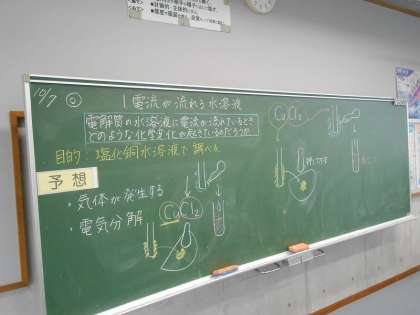 10/7
1 電流が流れる水溶液
電解質の水溶液に電流が流れているとき
どのような化学変化が起きているのだろうか
目的:塩化銅水溶液で調べる
予想
・気体が発生する
・電気分解
CuCl₂
CuCl₂